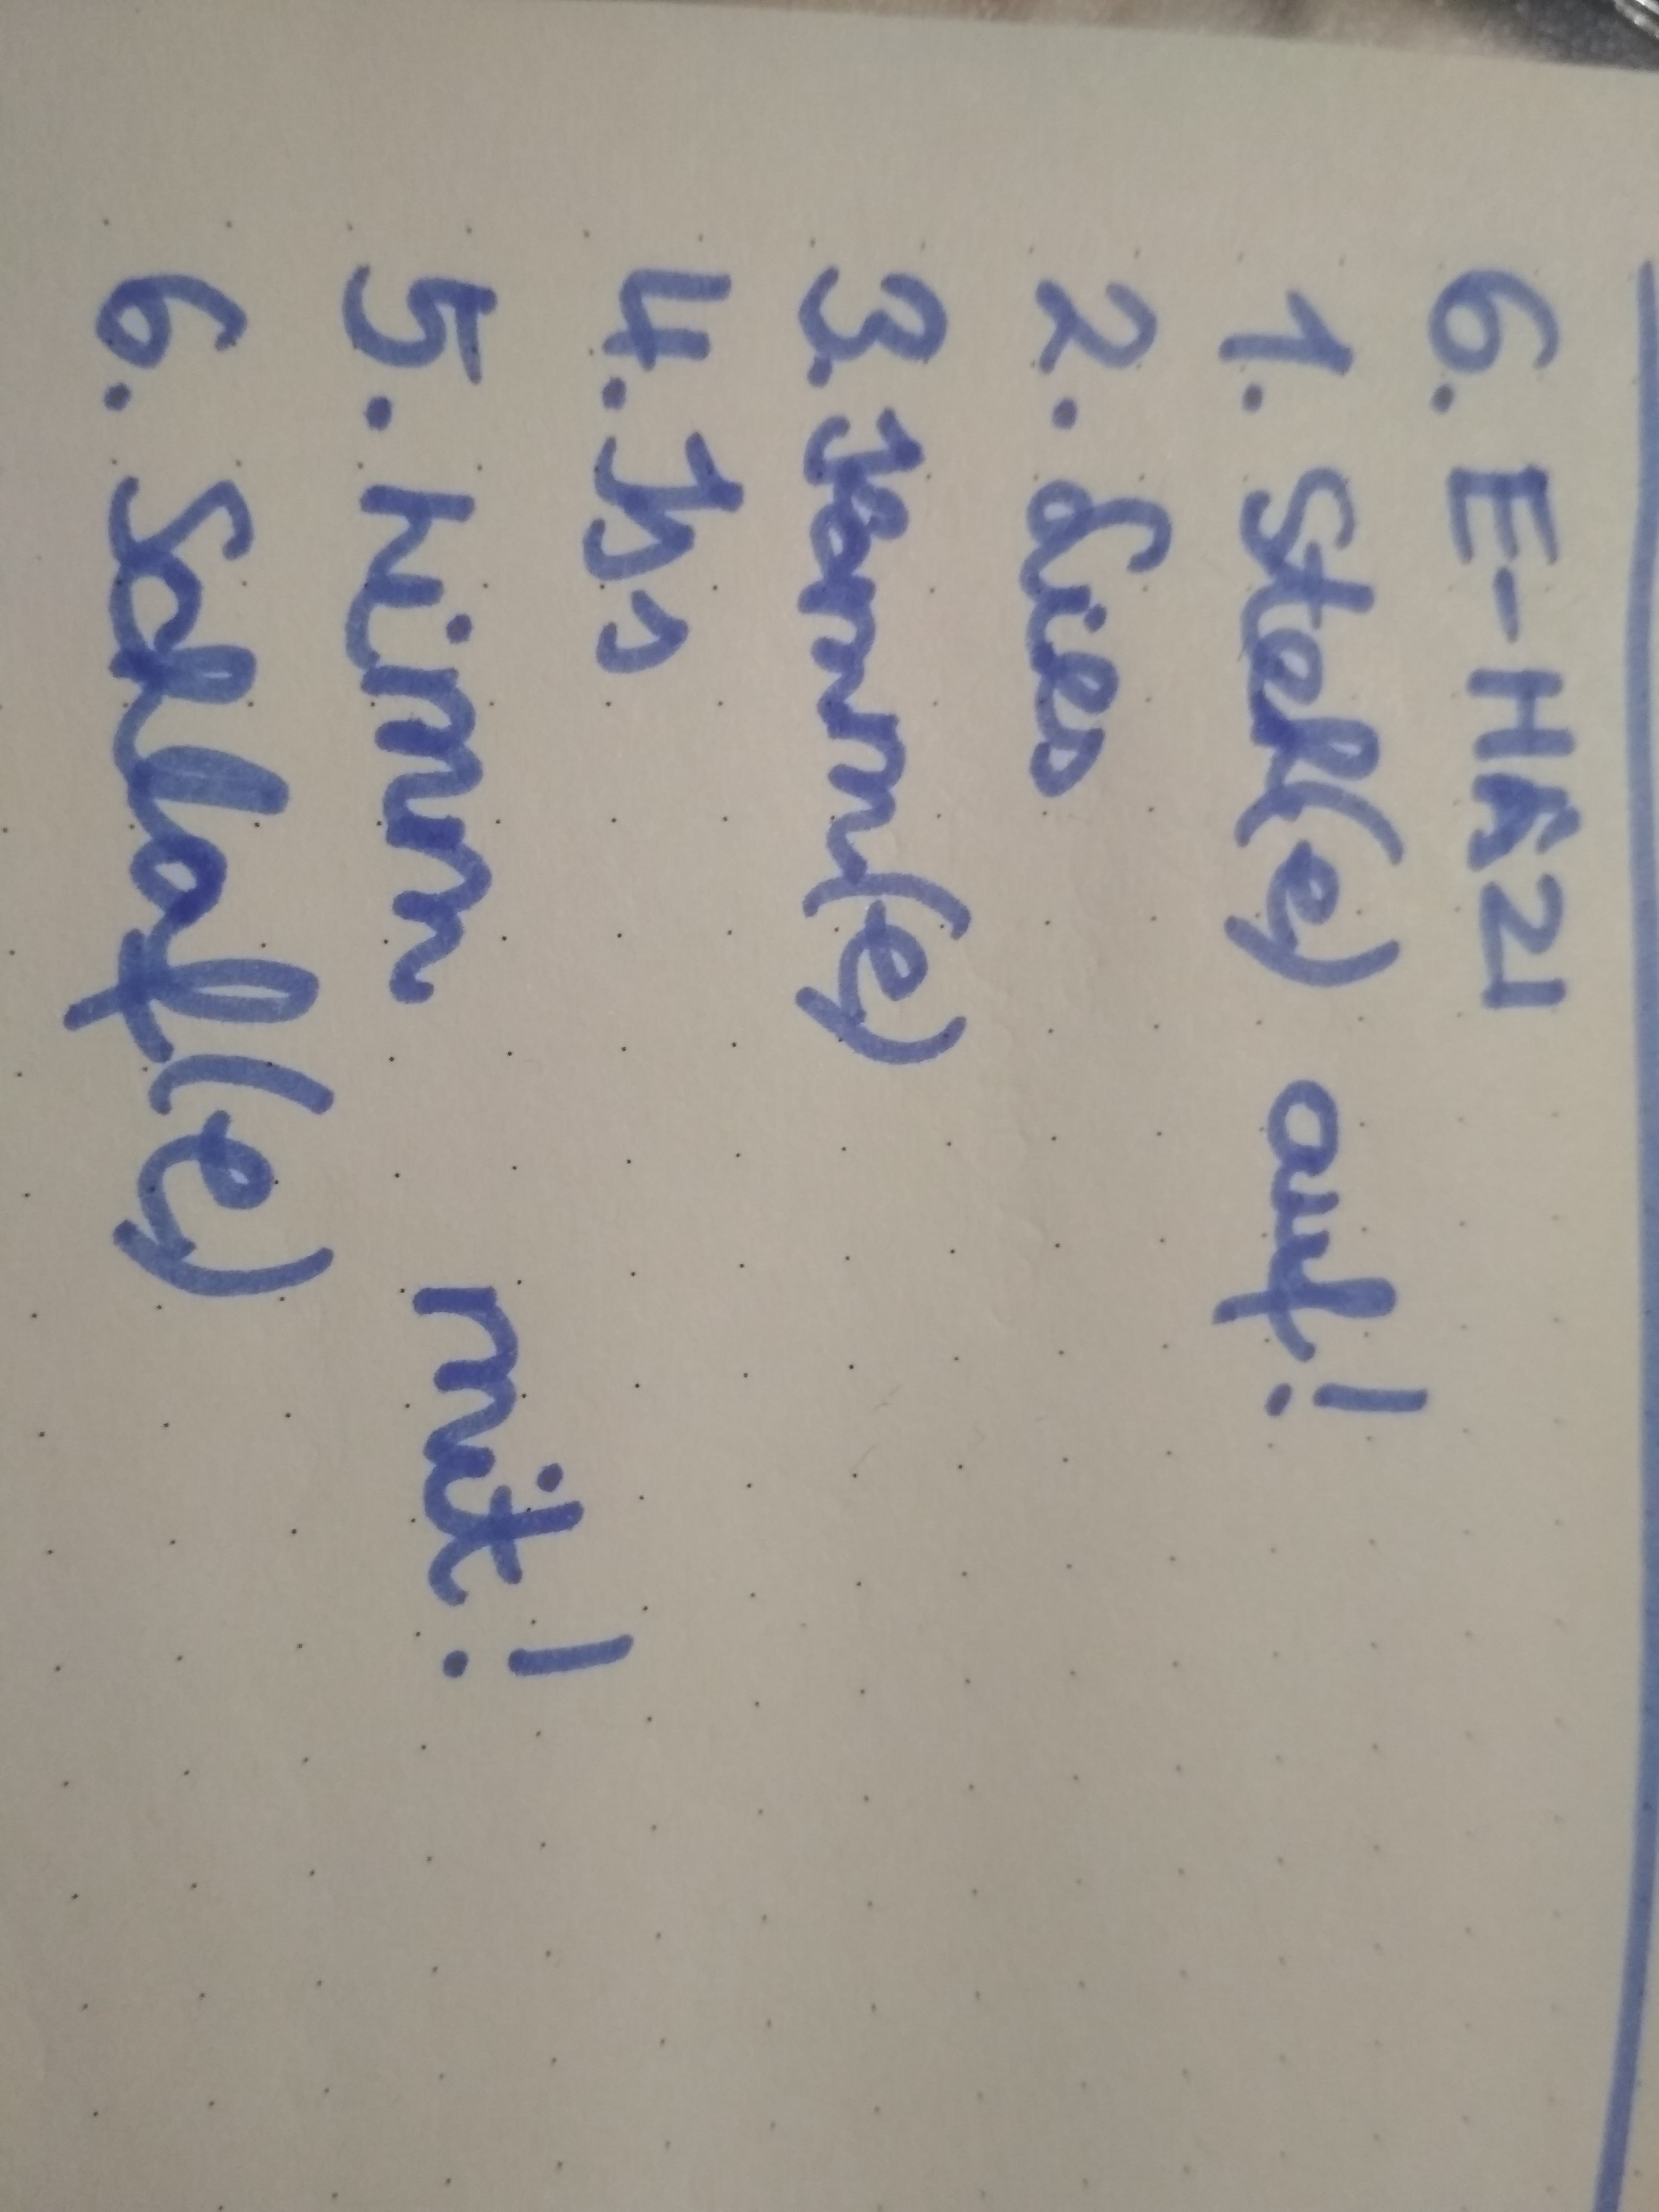 6. E-HA21
1. Steh(e) auf!
2. Lies
3. Komm(e)
4. Iss
5. Nimm mit!
6. Schlaf(e)